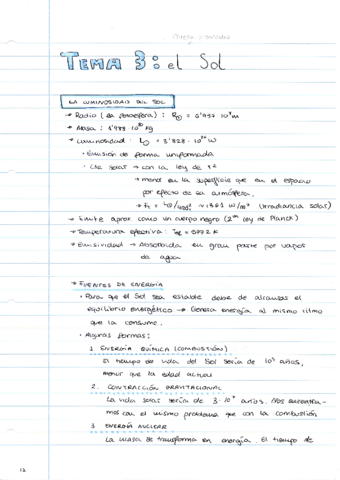 TEMA 3: el Sol
LA LUMINOSIDAD DEL SOL
→ Radio (la fotosfera): R⊙ = 6'957·10⁸ m
→ Masa: 1'989·10³⁰ kg
→ Luminosidad: L⊙ = 3'828·10²⁶ W
• Emisión de forma uniformada
• Cte solar → con la ley de r²
→ menor en la superficie que en el espacio
por efecto de su atmósfera.
≈ 1361 W/m² (irradiancia solar)
→ Emite aprox como un cuerpo negro (2ª ley de Planck)
→ Temperatura efectiva: Tef = 5772 K
→ Emisividad → Absorbida en gran parte por vapor
de agua
→ FUENTES DE ENERGÍA
• Para que el Sol sea estable debe de alcanzar el
equilibrio energético → Genera energía al mismo ritmo
que la consume.
• Algunas formas:
1. ENERGÍA QUÍMICA (COMBUSTIÓN)
El tiempo de vida del Sol sería de años,
menor que la edad actual
2. CONTRACCIÓN GRAVITACIONAL
La vida solar sería de 3·10⁷ años. Nos encontra-
mos con el mismo problema que con la combustión
3. ENERGÍA NUCLEAR
La masa se transforma en energía. El tiempo de
12